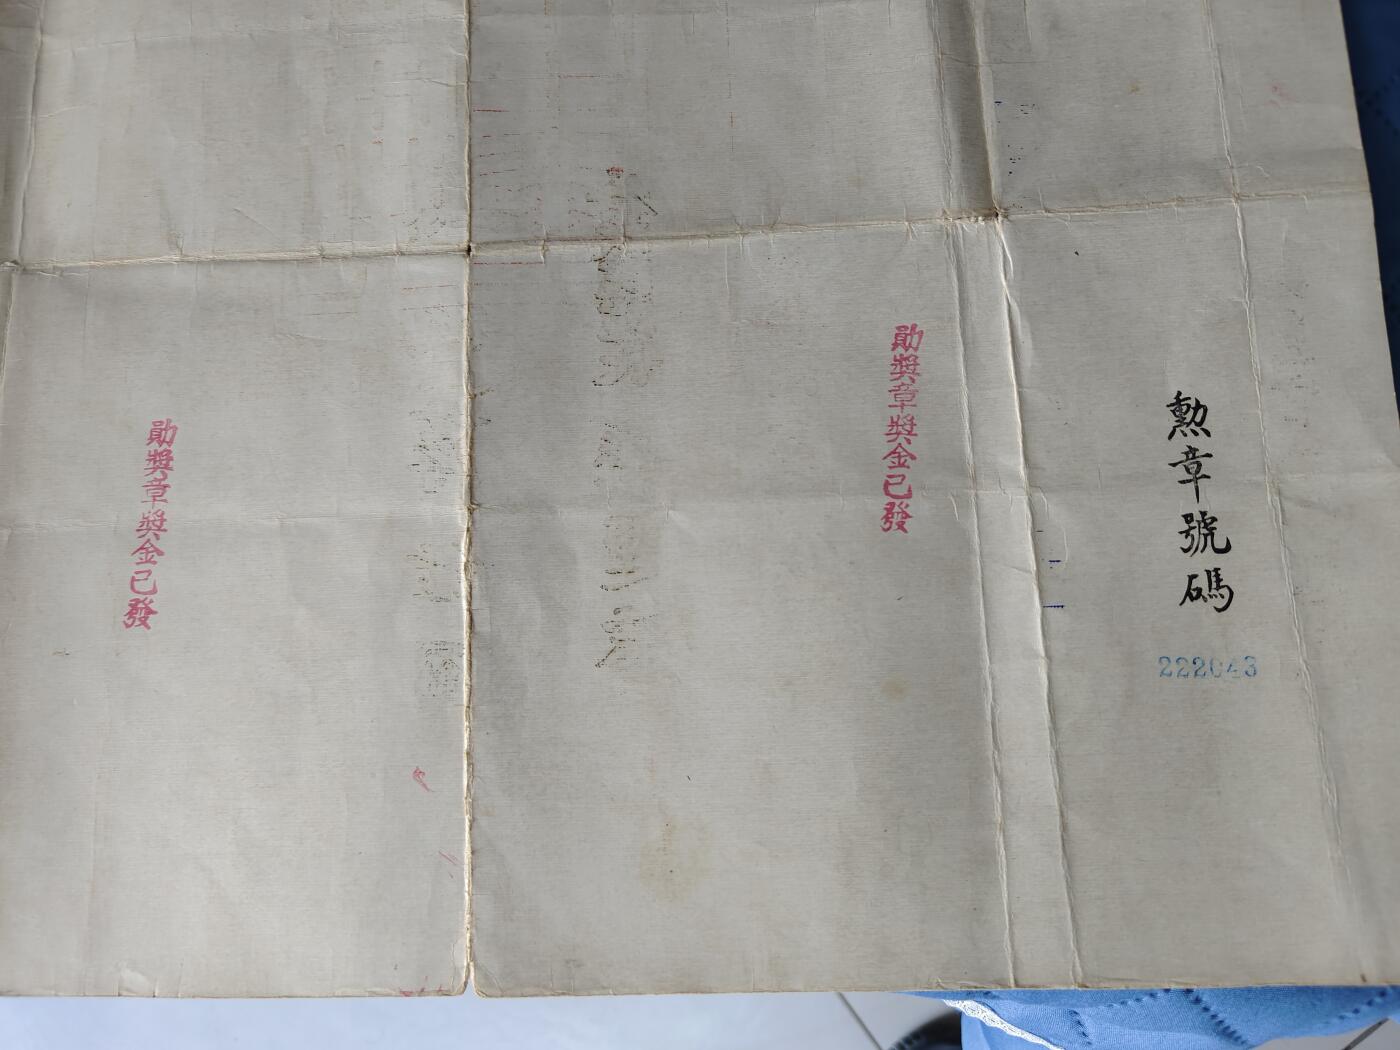 勲章號碼
222043
勛獎章獎金已發
勛獎章獎金已發